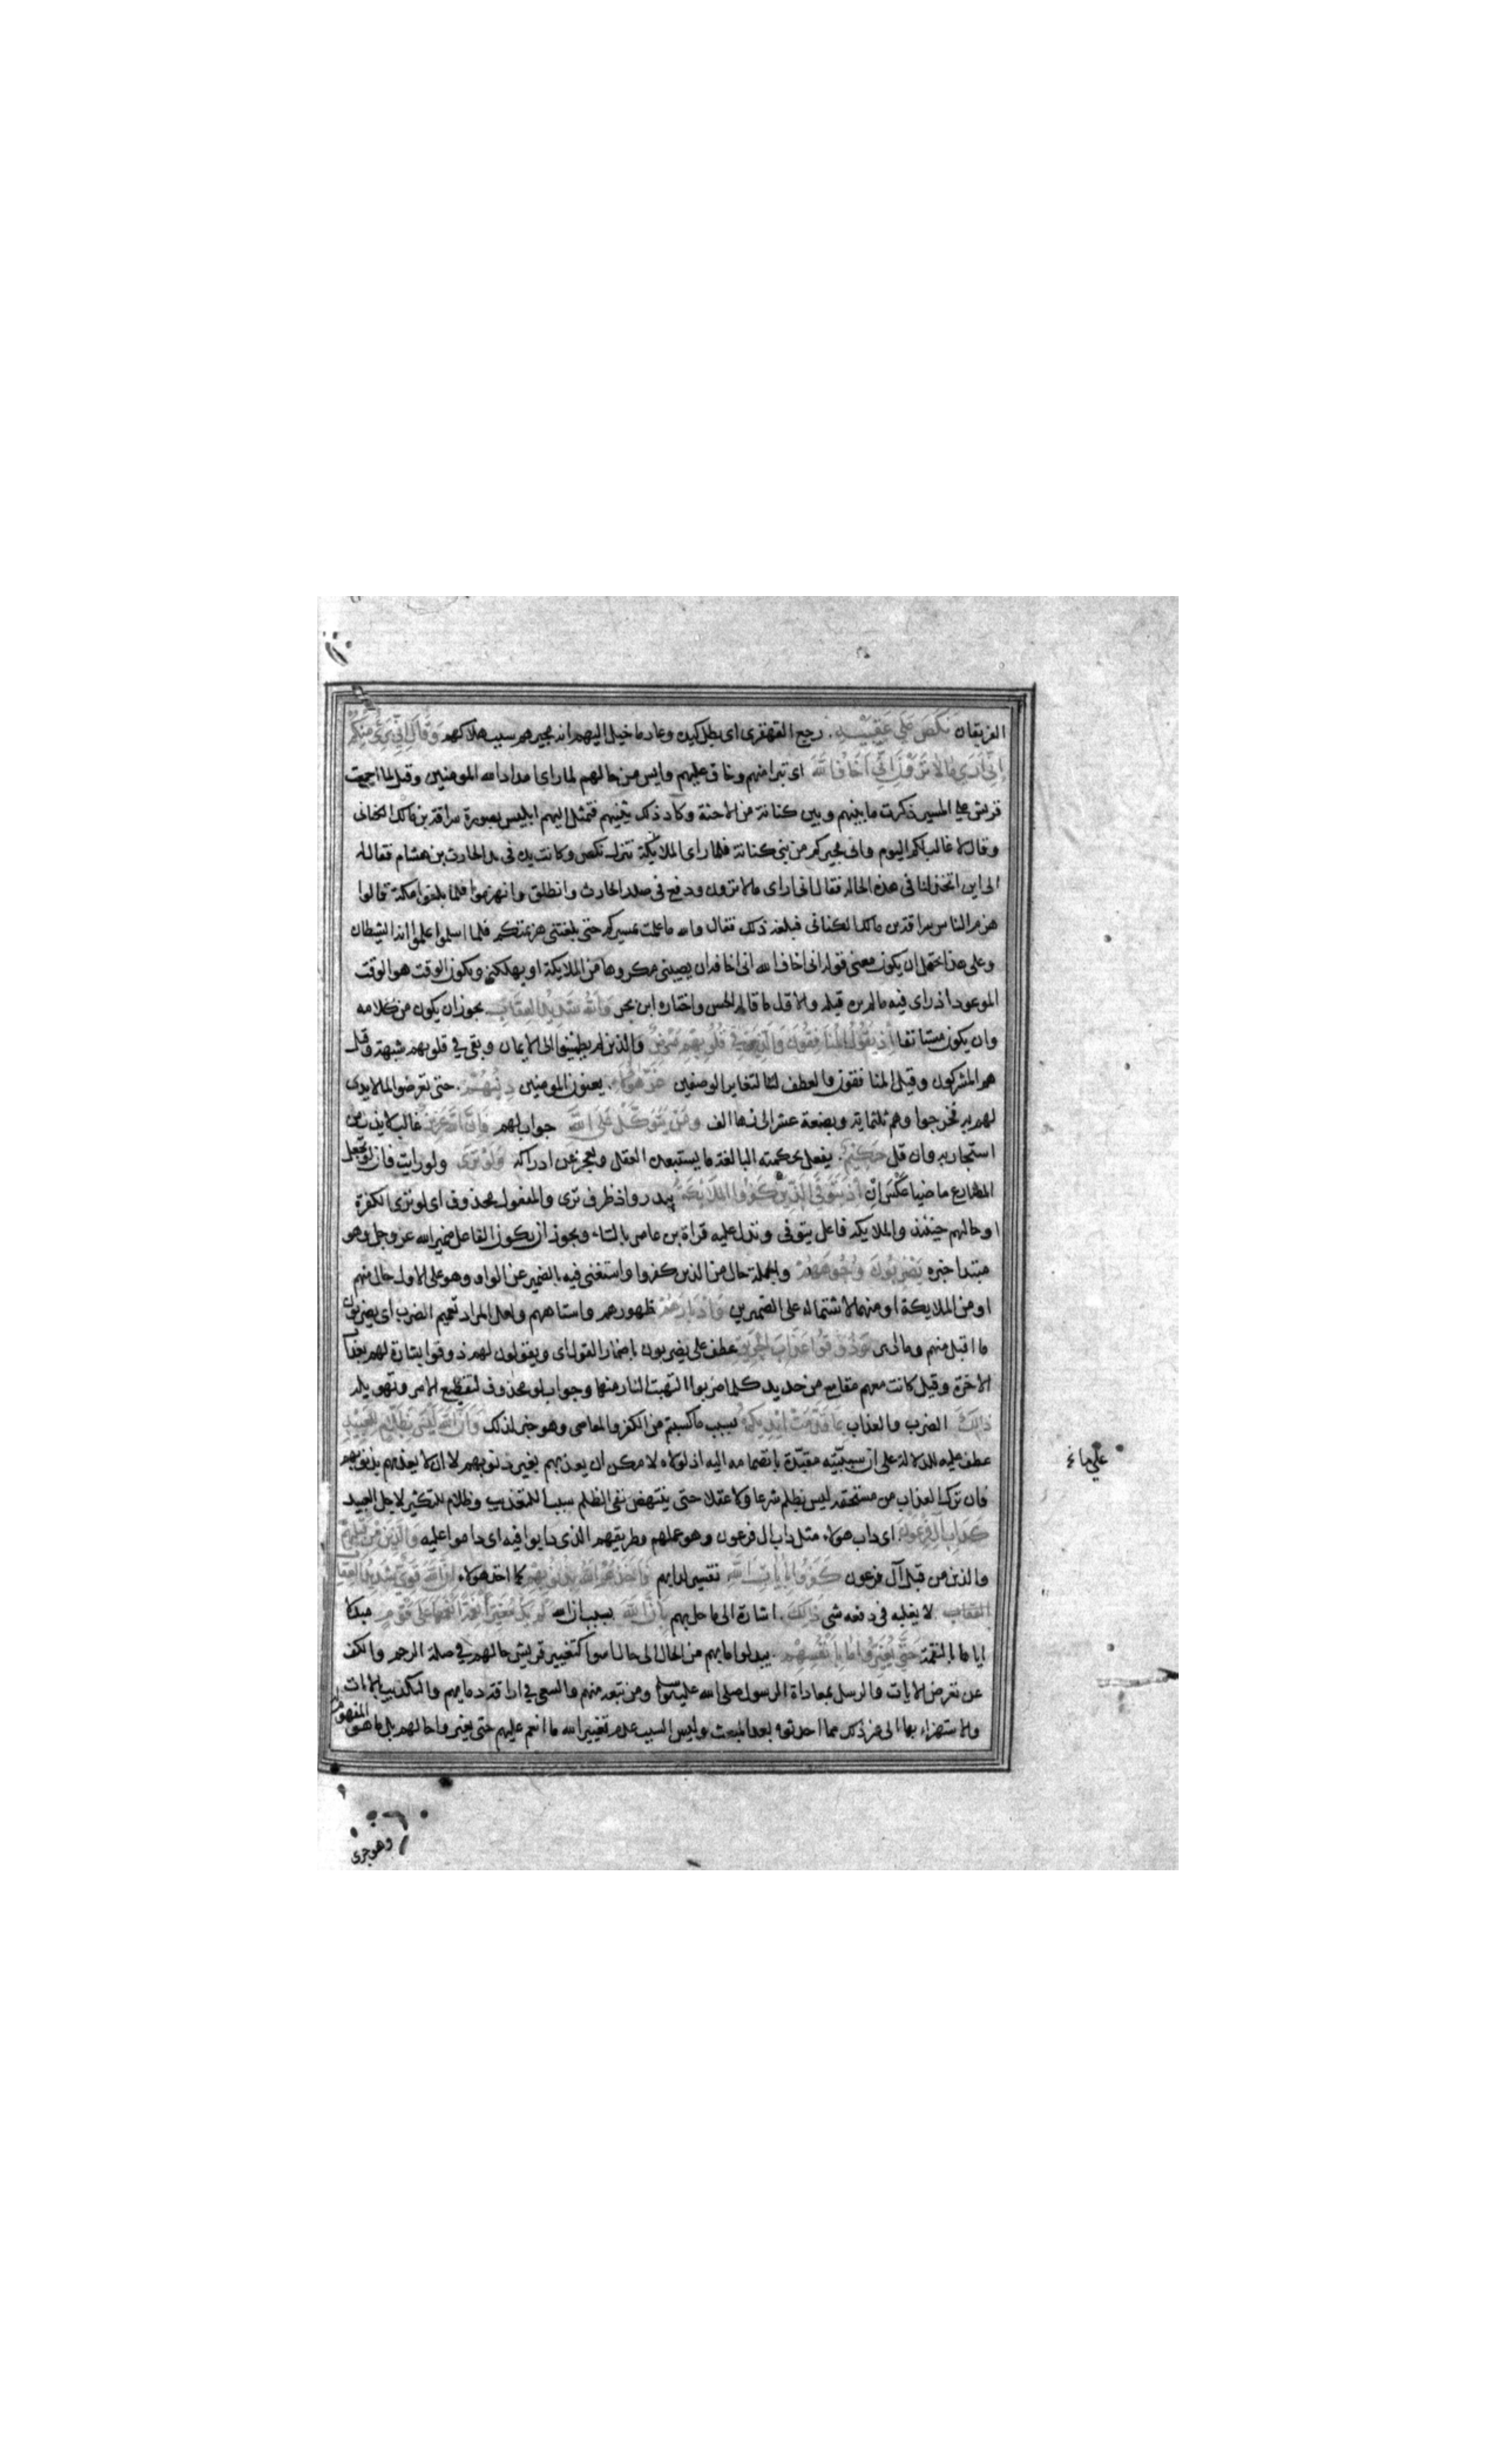 الفريقان نَكَصَ عَلى عَقِبَيْهِ رجع القهقرى اى بطل كيده وعاد ما خيل اليهم انه مجيرهم سبب هلاكهم وَقَالَ إِنِّي بَرِيءٌ مِنْكُمْ
إِنِّي أَرَى مَا لَا تَرَوْنَ إِنِّي أَخَافُ اللَّهَ اى تبرا منهم وخاف عليهم وايس من حالهم لما راى امداد الله المومنين وقيل لما اجمعت
قريش على المسير ذكرت ما بينهم وبين كنانة من الاحنة وكاد ذلك يثنيهم فتمثل اليهم ابليس بصورة سراقة بن مالك الكنانى
وقال لا غالب لكم اليوم وانى مجيركم من بنى كنانة فلما راى الملائكة تنزل نكص وكانت يده فى يد الحارث بن هشام فقال له
الى اين اتخذلنا فى هذه الحالة فقال انى ارى ما لا ترون ودفع فى صدر الحارث وانطلق وانهزموا فلما بلغوا مكة قالوا
هزم الناس سراقة بن مالك الكنانى فبلغه ذلك فقال والله ما علمت بمسيركم حتى بلغتنى هزيمتكم فلما اسلموا علموا انه الشيطان
وعلى هذا يحتمل ان يكون معنى قوله انى اخاف الله انى اخافه ان يصيبنى مكروها من الملايكة او يهلكنى ويكون الوقت هو الوقت
الموعود اذ راى فيه ما لم ير قبله والاول ما قاله الحسن واختاره ابن بحر وَاللَّهُ شَدِيدُ الْعِقَابِ يجوز ان يكون من كلامه
وان يكون مستانفا إِذْ يَقُولُ الْمُنَافِقُونَ وَالَّذِينَ فِي قُلُوبِهِمْ مَرَضٌ والذين لم يطمئنوا الى الايمان وبقى فى قلوبهم شبهة وقيل
هم المشركون وقيل المنافقون والعطف لتغاير الوصفين غَرَّ هَؤُلَاءِ يعنون المومنين دِينُهُمْ حتى تعرضوا لما لا يدى
لهم به فخرجوا وهم ثلثماية وبضعة عشر الى زهاء الف وَمَنْ يَتَوَكَّلْ عَلَى اللَّهِ جواب لهم فَإِنَّ اللَّهَ عَزِيزٌ غالب لا يذل من
استجار به وان قل حَكِيمٌ يفعل بحكمته البالغة ما يستبعده العقل ويعجز عن ادراكه وَلَوْ تَرَى ولو رايت فان لو تجعل
المضارع ماضيا عكس ان إِذْ يَتَوَفَّى الَّذِينَ كَفَرُوا الْمَلَائِكَةُ ببدر واذ ظرف ترى والمفعول محذوف اى لو ترى الكفرة
او حالهم حينئذ والملايكه فاعل يتوفى وتدل عليه قراة بن عامر بالتاء ويجوز ان يكون الفاعل ضمير الله عز وجل وهو
مبتدا خبره يَضْرِبُونَ وُجُوهَهُمْ والجملة حال من الذين كفروا واستغنى فيه بالضمير عن الواو وهو على الاول حال منهم
او من الملايكة او منهما لاشتماله على الضميرين وَأَدْبَارَهُمْ ظهورهم واستاههم ولعل المراد تعميم الضرب اى يضربون
ما اقبل منهم وما ادبر وَذُوقُوا عَذَابَ الْحَرِيقِ عطف على يضربون باضمار القول اى ويقولون لهم ذوقوا بشارة لهم بعذاب
الاخرة وقيل كانت معهم مقامع من حديد كلما ضربوا التهبت النار منها وجواب لو محذوف لتفظيع الامر وتهويله
ذَلِكَ الضرب والعذاب بِمَا قَدَّمَتْ أَيْدِيكُمْ بسبب ما كسبتم من الكفر والمعاصى وهو خبر لذلك وَأَنَّ اللَّهَ لَيْسَ بِظَلَّامٍ لِلْعَبِيدِ
عطف عليه للدلالة على ان سببيته مقيدة بانضمامه اليه اذ لولاه لامكن ان يعذبهم بغير ذنوبهم لا ان لا يعذبهم بذنوبهم
فان ترك العذاب من مستحقه ليس بظلم شرعا ولا عقلا حتى ينتهض نفى الظلم سببا للتعذيب وظلام للتكثير لاجل العبيد
كَدَأْبِ آلِ فِرْعَوْنَ اى داب هولاء مثل داب ال فرعون وهو عملهم وطريقهم الذى دابوا فيه اى داموا عليه وَالَّذِينَ مِنْ قَبْلِهِمْ
والذين من قبل آل فرعون كَفَرُوا بِآيَاتِ اللَّهِ تفسير لدابهم فَأَخَذَهُمُ اللَّهُ بِذُنُوبِهِمْ كما اخذ هولاء إِنَّ اللَّهَ قَوِيٌّ شَدِيدُ الْعِقَابِ
العقاب لا يغلبه فى دفعه شى ذَلِكَ اشارة الى ما حل بهم بِأَنَّ اللَّهَ بسبب ان الله لَمْ يَكُ مُغَيِّرًا نِعْمَةً أَنْعَمَهَا عَلَى قَوْمٍ مبدلا
اياها بالنقمة حَتَّى يُغَيِّرُوا مَا بِأَنْفُسِهِمْ يبدلوا ما بهم من الحال الى حال اسوا كتغيير قريش حالهم فى صلة الرحم والكف
عن تعرض الايات والرسل بمعاداة الرسول صلى الله عليه وسلم ومن تبعه منهم والسعى فى اراقة دمايهم والتكذيب بالايات
والاستهزاء بها الى غير ذلك مما احدثوه بعد المبعث وليس السبب عدم تغيير الله ما انعم عليهم حتى يغيروا حالهم بل ما هو المفهوم
وهو جرى